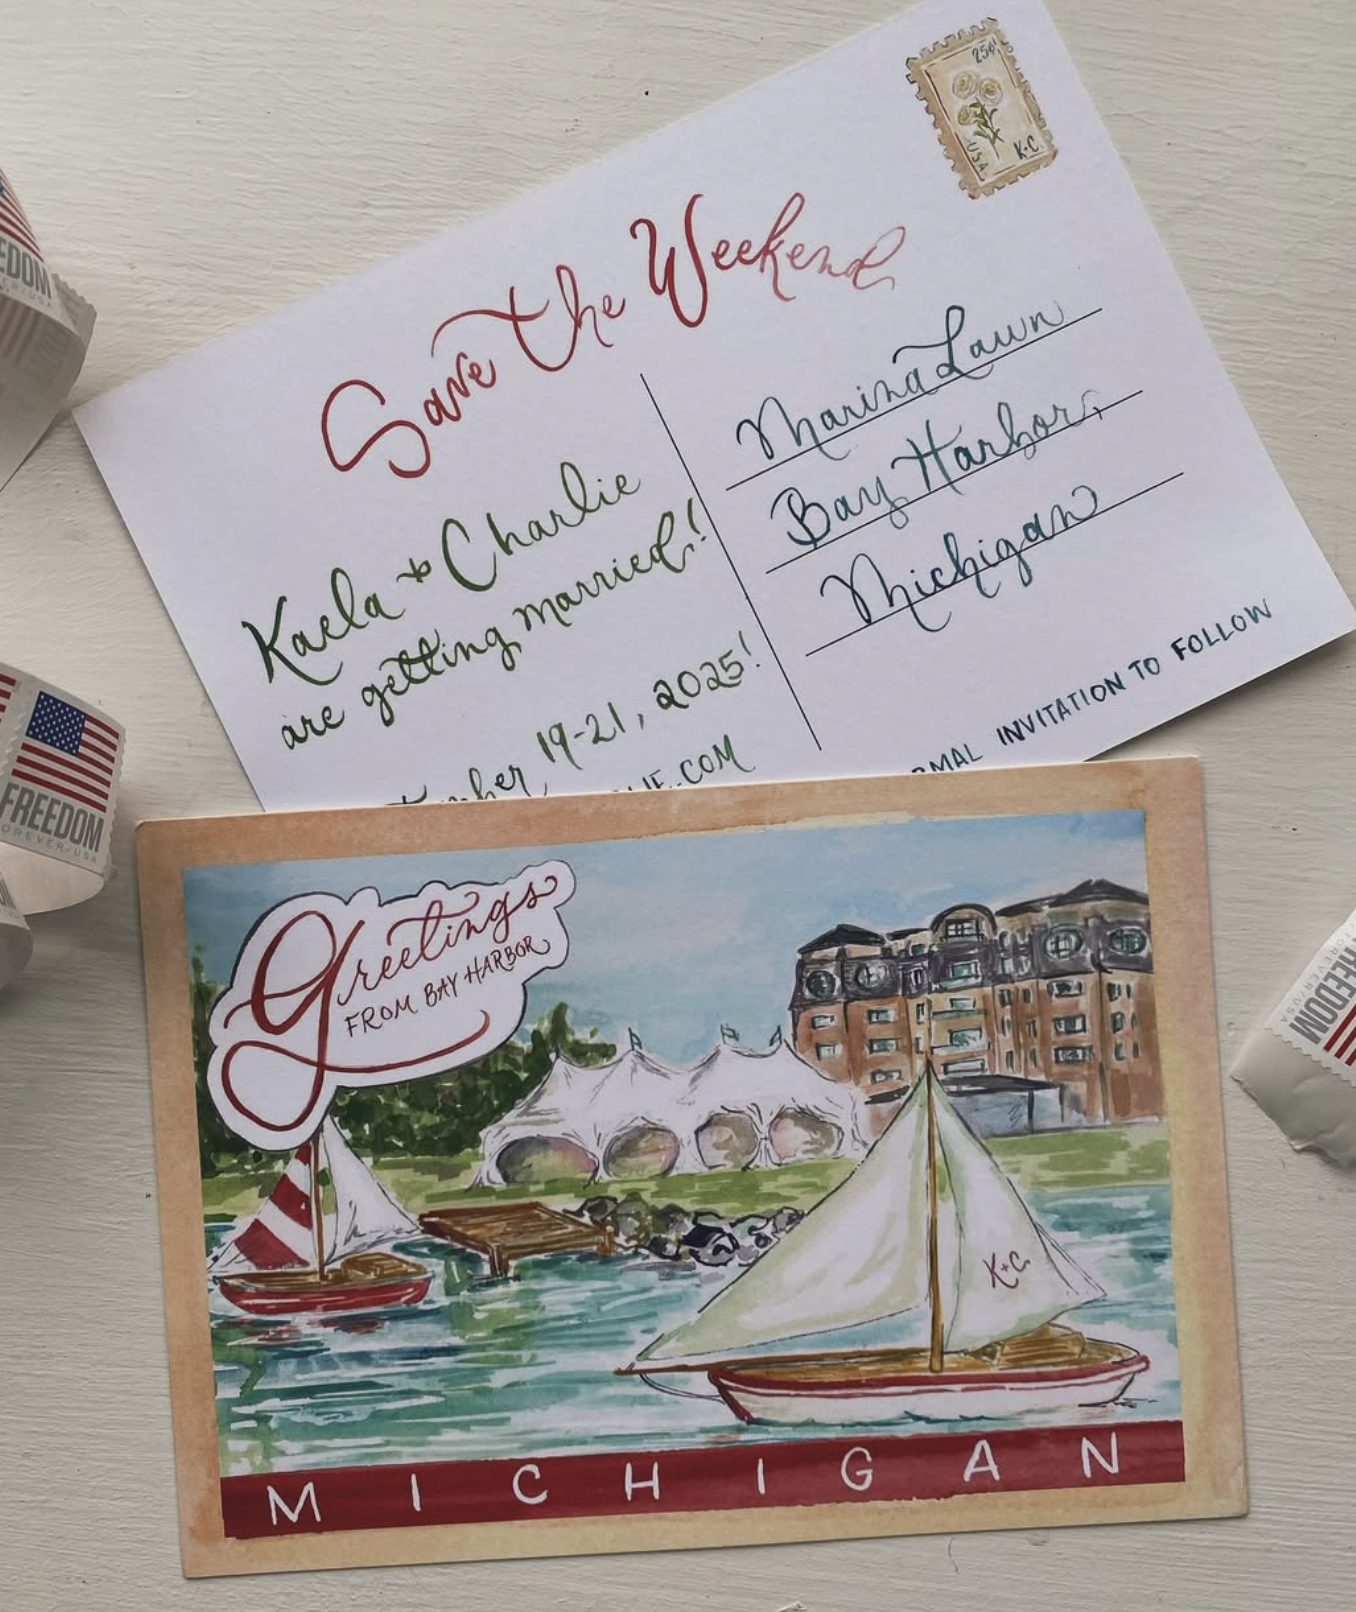 25¢
USA
K·C
Save the Weekend
Kaela & Charlie
are getting married!
19-21, 2025!
.COM
Marina Lawn
Bay Harbor,
Michigan
INVITATION TO FOLLOW
Greetings
FROM BAY HARBOR
K+C
MICHIGAN
FREEDOM
FOREVER/USA
FREEDOM
FOREVER/USA